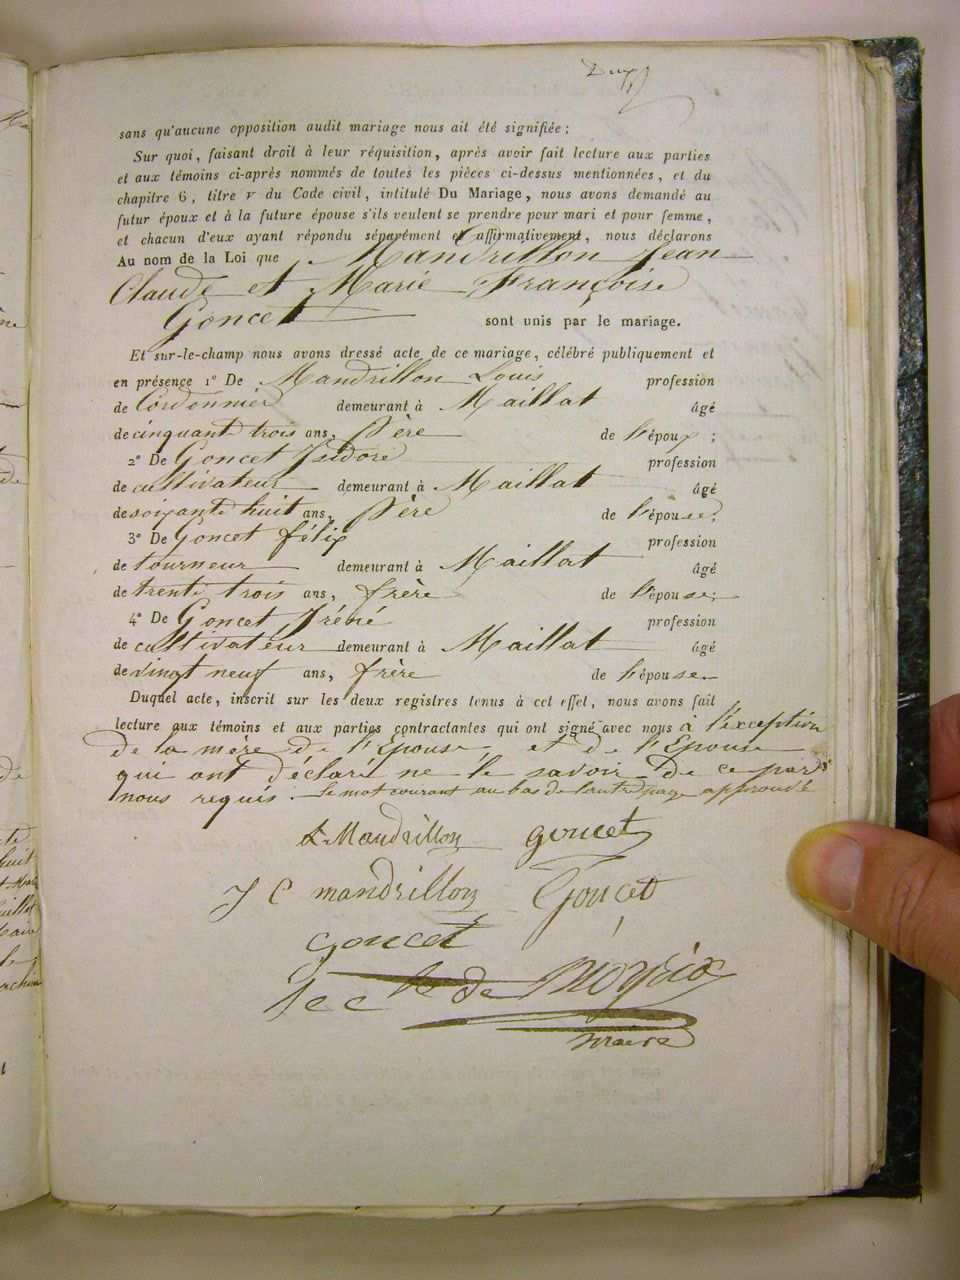 sans qu'aucune opposition audit mariage nous ait été signifiée ;
Sur quoi, faisant droit à leur réquisition, après avoir fait lecture aux parties
et aux témoins ci-après nommés de toutes les pièces ci-dessus mentionnées, et du
chapitre 6, titre v du Code civil, intitulé Du Mariage, nous avons demandé au
futur époux et à la future épouse s'ils veulent se prendre pour mari et pour femme,
et chacun d'eux ayant répondu séparément et affirmativement, nous déclarons
Au nom de la Loi que Mandrillon Jean
Claude et Marie Françoise
Goncet sont unis par le mariage.
Et sur-le-champ nous avons dressé acte de ce mariage, célébré publiquement et
en présence 1º De Mandrillon Louis profession
de Cordonnier demeurant à Maillat âgé
de cinquante trois ans, Père de l'époux ;
2º De Goncet Isidore profession
de cultivateur demeurant à Maillat âgé
de soixante huit ans, Père de l'épouse ;
3º De Goncet félix profession
de tourneur demeurant à Maillat âgé
de trente trois ans, frère de l'épouse ;
4º De Goncet Iréné profession
de cultivateur demeurant à Maillat âgé
de vingt neuf ans, frère de l'épouse
Duquel acte, inscrit sur les deux registres tenus à cet effet, nous avons fait
lecture aux témoins et aux parties contractantes qui ont signé avec nous à l'exception
de la mère de l'Epouse et de l'Epouse
qui ont déclaré ne le savoir de ce par
nous requis. Le mot courant au bas de l'autre page approuvé
L Mandrillon goncet
J C mandrillon Goncet
goncet
de
maire